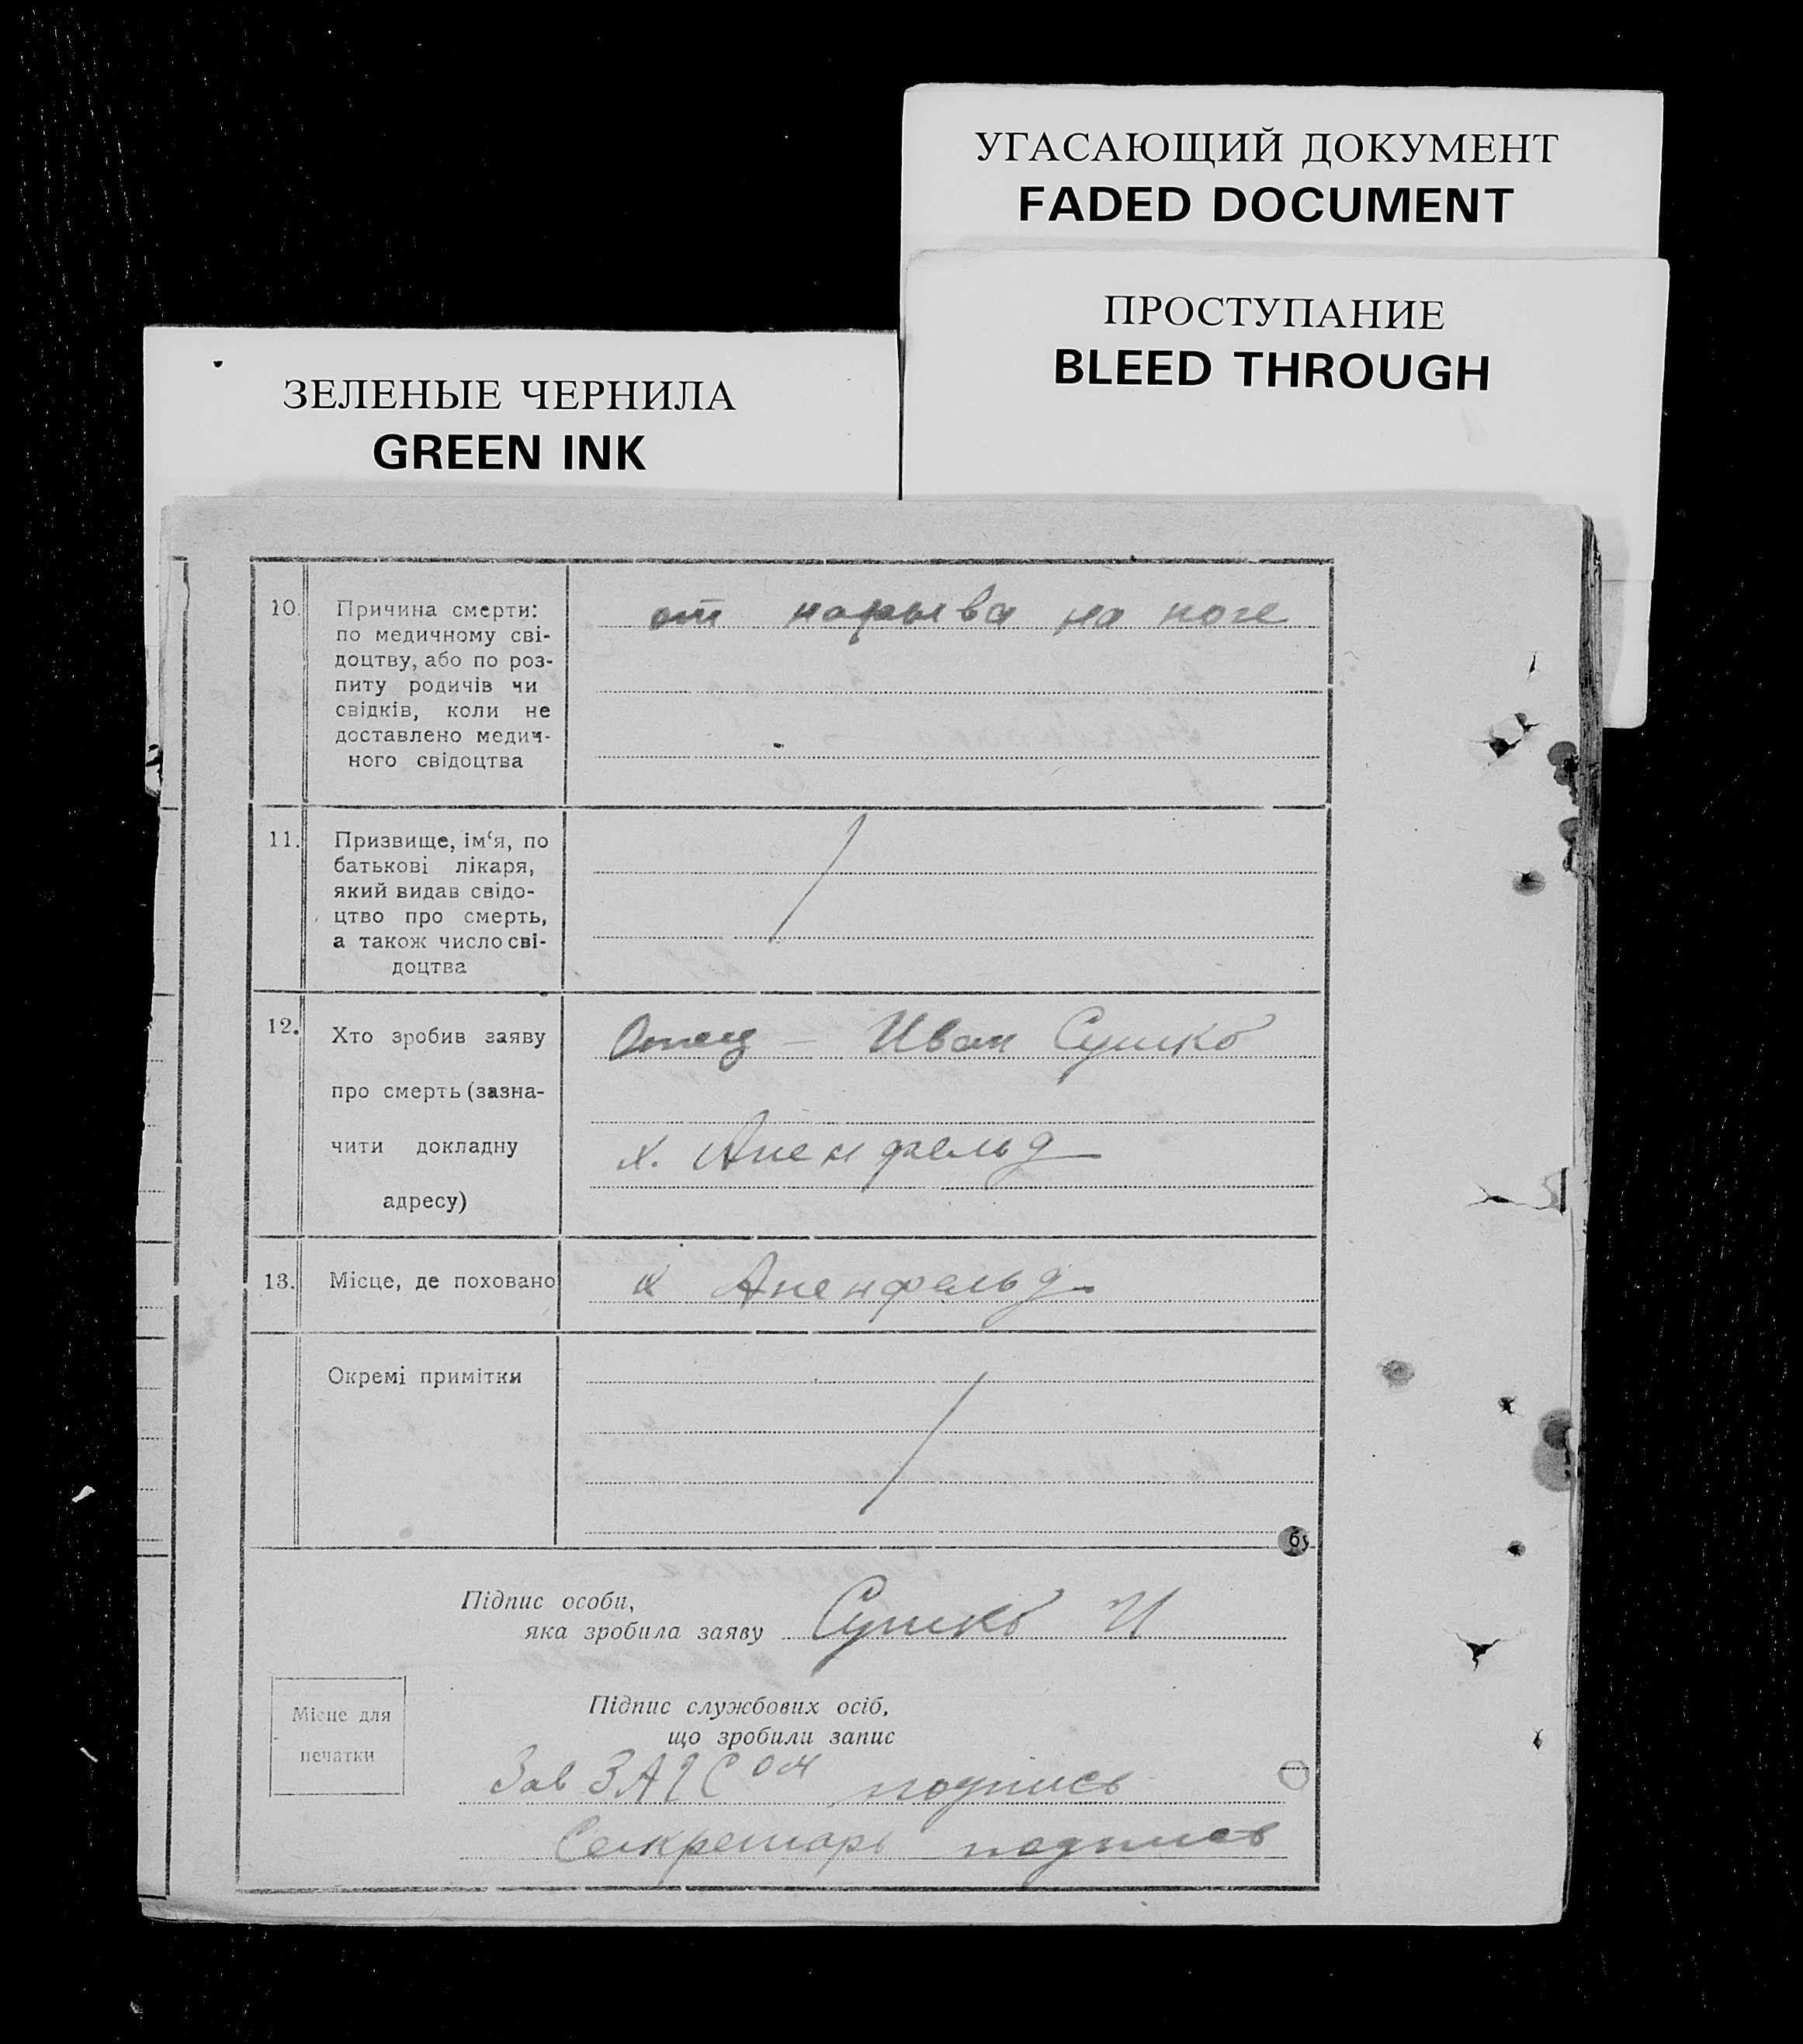 УГАСАЮЩИЙ ДОКУМЕНТ
FADED DOCUMENT
ПРОСТУПАНИЕ
BLEED THROUGH
ЗЕЛЕНЫЕ ЧЕРНИЛА
GREEN INK
10. Причина смерти:
по медичному сві-
доцтву, або по роз-
питу родичів чи
свідків, коли не
доставлено медич-
ного свідоцтва
от нарыва на ноге
11. Призвище, ім‘я, по
батькові лікаря,
який видав свідо-
цтво про смерть,
а також число сві-
доцтва
12. Хто зробив заяву
про смерть (зазна-
чити докладну
адресу)
Отец — Иван Сушко
х. Апенфельд
13. Місце, де поховано
х Апенфельд
Окремі примітки
Підпис особи,
яка зробила заяву Сушко И
Місце для
печатки
Підпис службових осіб,
що зробили запис
Зав ЗАГСом подпись
Секретарь подпись